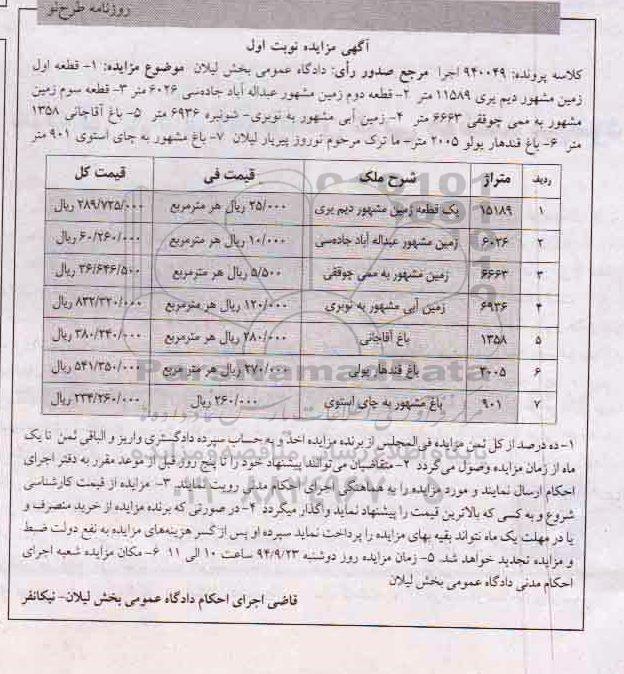 روزنامه طرح‌نو
آگهی مزایده نوبت اول
کلاسه پرونده: ۹۴۰۰۴۹ اجرا مرجع صدور رأی: دادگاه عمومی بخش لیلان موضوع مزایده: ۱- قطعه اول
زمین مشهور دیم یری ۱۱۵۸۹ متر ۲- قطعه دوم زمین مشهور عبداله آباد جاده‌سی ۶۰۲۶ متر ۳- قطعه سوم زمین
مشهور به ممی چوققی ۶۶۶۳ متر ۴- زمین آبی مشهور به نوبری- شونبره ۶۹۳۶ متر ۵- باغ آقاجانی ۱۳۵۸
متر ۶- باغ قندهار یولو ۲۰۰۵ متر- ما ترک مرحوم نوروز پیریار لیلان ۷- باغ مشهور به چای استوی ۹۰۱ متر
ردیف متراژ شرح ملک قیمت فی قیمت کل
۱ ۱۵۱۸۹ یک قطعه زمین مشهور دیم یری ۲۵/۰۰۰ ریال هر مترمربع ۲۸۹/۷۲۵/۰۰۰ ریال
۲ ۶۰۲۶ زمین مشهور عبداله آباد جاده‌سی ۱۰/۰۰۰ ریال هر مترمربع ۶۰/۲۶۰/۰۰۰ ریال
۳ ۶۶۶۳ زمین مشهور به ممی چوققی ۵/۵۰۰ ریال هر مترمربع ۳۶/۶۴۶/۵۰۰ ریال
۴ ۶۹۳۶ زمین آبی مشهور به نوبری ۱۲۰/۰۰۰ ریال هر مترمربع ۸۳۲/۳۲۰/۰۰۰ ریال
۵ ۱۳۵۸ باغ آقاجانی ۲۸۰/۰۰۰ ریال هر مترمربع ۳۸۰/۲۴۰/۰۰۰ ریال
۶ ۲۰۰۵ باغ قندهار یولی ۲۷۰/۰۰۰ ریال هر متر مربع ۵۴۱/۳۵۰/۰۰۰ ریال
۷ ۹۰۱ باغ مشهور به چای استوی ۲۶۰/۰۰۰ ریال ۲۳۴/۲۶۰/۰۰۰ ریال
ParsNamadData
۱- ده درصد از کل ثمن مزایده فی‌المجلس از برنده مزایده اخذ و به حساب سپرده دادگستری واریز و الباقی ثمن تا یک
ماه از زمان مزایده وصول می‌گردد ۲- متقاضیان می‌توانند پیشنهاد خود را تا پنج روز قبل از موعد مقرر به دفتر اجرای
احکام ارسال نمایند و مورد مزایده را به هماهنگی اجرای احکام مدنی رویت نمایند. ۳- مزایده از قیمت کارشناسی
شروع و به کسی که بالاترین قیمت را پیشنهاد نماید واگذار میگردد ۴- در صورتی که برنده مزایده از خرید منصرف و
یا در مهلت یک ماه نتواند بقیه بهای مزایده را پرداخت نماید سپرده او پس از کسر هزینه‌های مزایده به نفع دولت ضبط
و مزایده تجدید خواهد شد. ۵- زمان مزایده روز دوشنبه ۹۴/۹/۲۳ ساعت ۱۰ الی ۱۱ ۶- مکان مزایده شعبه اجرای
احکام مدنی دادگاه عمومی بخش لیلان
قاضی اجرای احکام دادگاه عمومی بخش لیلان- نیکانفر